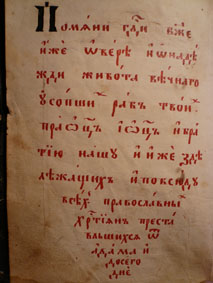 Помѧни гдⷭ҇и бж҃е
и҆́же ѡ҆ вѣрѣ и҆ ѡ҆ наде́
жди живота вѣчнаго
ᲂу҆сопши рабъ твои҆
пра ѻ҆ц҃ъ і ѻ҆ц҃ъ и҆ бра
тїю нашу и҆ и҆́же здѣ
лежащихъ и҆ повсюду
всѣхъ православны
хрⷭ҇тїѧнъ преста
вльшихсѧ ѿ
адама и҆
до сего
дн҃е